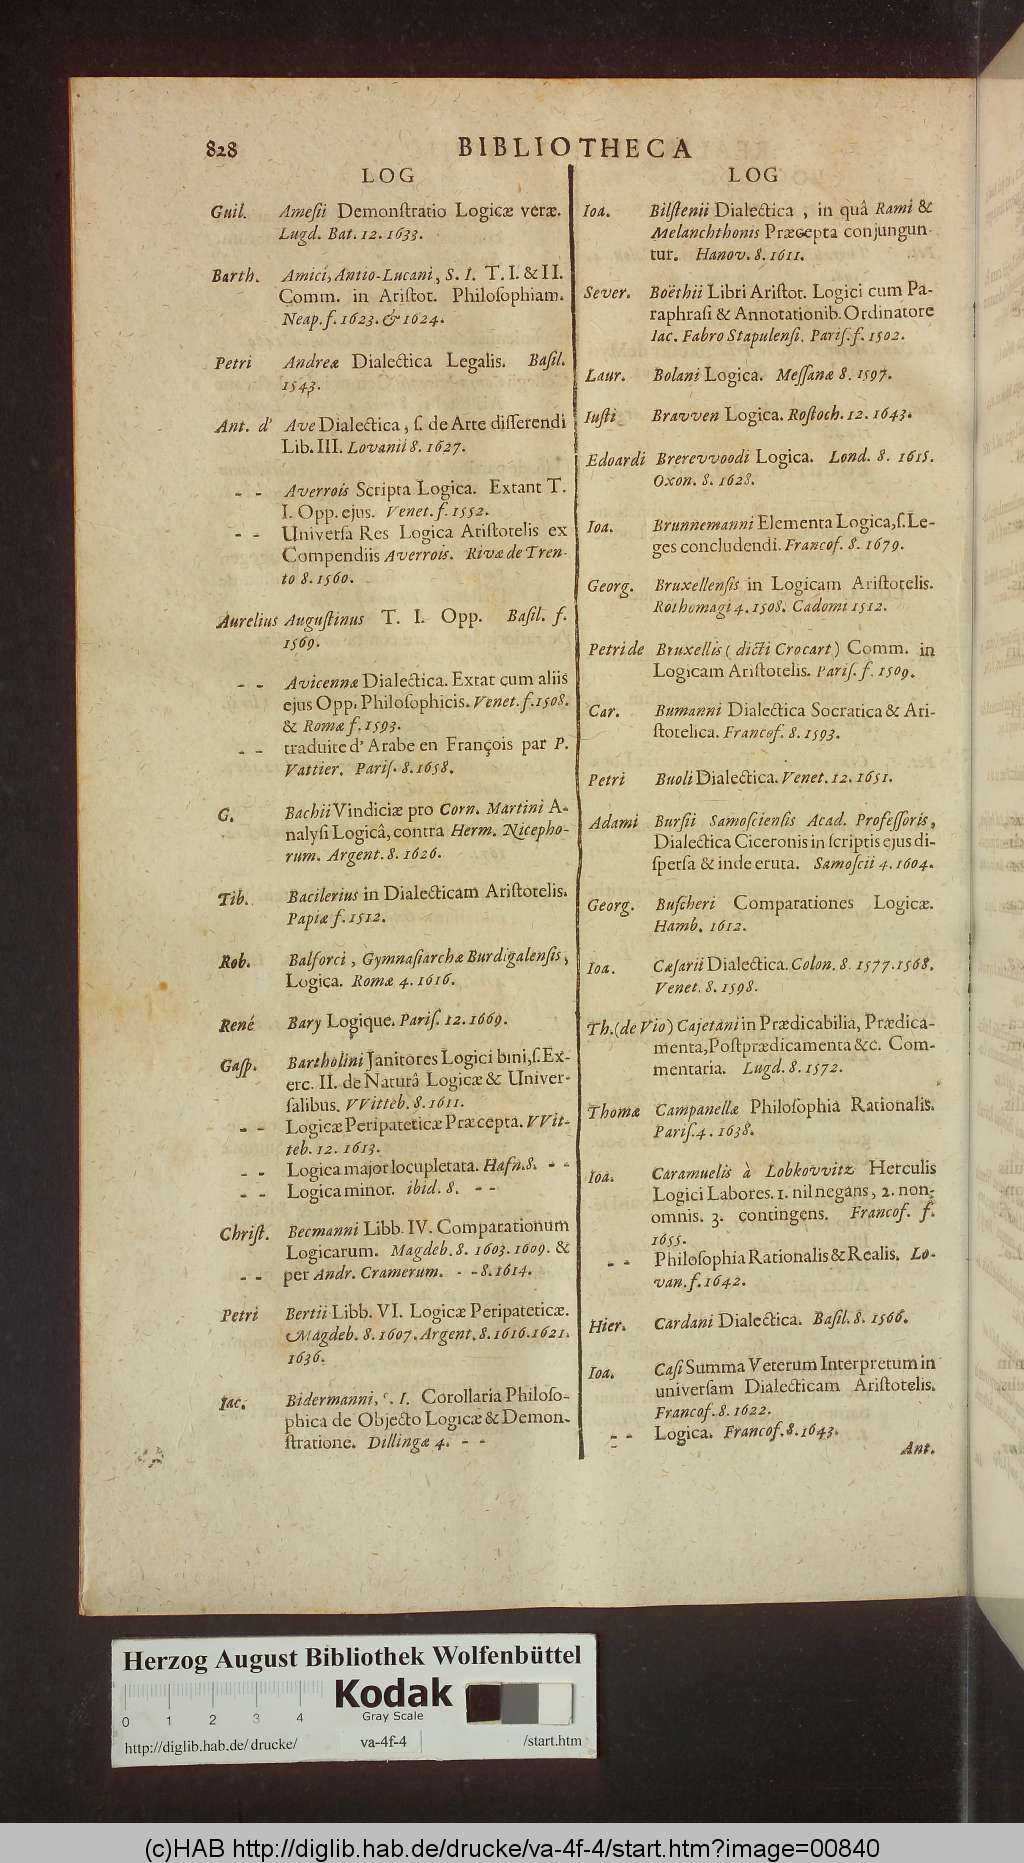 828
BIBLIOTHECA
LOG
Guil. Amesii Demonſtratio Logicæ veræ.
Lugd. Bat. 12. 1633.
Barth. Amici, Antio-Lucani, S. I. T. I. & II.
Comm. in Ariſtot. Philoſophiam.
Neap. f. 1623. & 1624.
Petri Andreæ Dialectica Legalis. Baſil.
1543.
Ant. d' Ave Dialectica, ſ. de Arte diſſerendi
Lib. III. Lovanii 8. 1627.
- - Averrois Scripta Logica. Extant T.
I. Opp. ejus. Venet. f. 1552.
- - Univerſa Res Logica Ariſtotelis ex
Compendiis Averrois. Rivæ de Tren-
to 8. 1560.
Aurelius Auguſtinus T. I. Opp. Baſil. f.
1569.
- - Avicennæ Dialectica. Extat cum aliis
ejus Opp. Philoſophicis. Venet. f. 1508.
& Romæ f. 1593.
- - traduite d' Arabe en François par P.
Vattier. Pariſ. 8. 1658.
G. Bachii Vindiciæ pro Corn. Martini A-
nalyſi Logicâ, contra Herm. Nicepho-
rum. Argent. 8. 1626.
Tib. Bacilerius in Dialecticam Ariſtotelis.
Papiæ f. 1512.
Rob. Balforci, Gymnaſiarchæ Burdigalenſis,
Logica. Romæ 4. 1616.
René Bary Logique. Pariſ. 12. 1669.
Gaſp. Bartholini Janitores Logici bini, ſ. Ex-
erc. II. de Naturâ Logicæ & Univer-
ſalibus. VVitteb. 8. 1611.
- - Logicæ Peripateticæ Præcepta. VVit-
teb. 12. 1613.
- - Logica major locupletata. Hafn. 8. - -
- - Logica minor. ibid. 8. - -
Chriſt. Becmanni Libb. IV. Comparationum
Logicarum. Magdeb. 8. 1603. 1609. &
- - per Andr. Cramerum. - - 8. 1614.
Petri Bertii Libb. VI. Logicæ Peripateticæ.
Magdeb. 8. 1607. Argent. 8. 1616. 1621.
1636.
Iac. Bidermanni, S. I. Corollaria Philoſo-
phica de Objecto Logicæ & Demon-
ſtratione. Dillingæ 4. - -
LOG
Ioa. Bilſtenii Dialectica, in quâ Rami &
Melanchthonis Præcepta conjungun-
tur. Hanov. 8. 1611.
Sever. Boëthii Libri Ariſtot. Logici cum Pa-
raphraſi & Annotationib. Ordinatore
Iac. Fabro Stapulenſi. Pariſ. f. 1502.
Laur. Bolani Logica. Meſſanæ 8. 1597.
Iuſti Bravven Logica. Roſtoch. 12. 1643.
Edoardi Brerevvoodi Logica. Lond. 8. 1615.
Oxon. 8. 1628.
Ioa. Brunnemanni Elementa Logica, ſ. Le-
ges concludendi. Francof. 8. 1679.
Georg. Bruxellenſis in Logicam Ariſtotelis.
Rothomagi 4. 1508. Cadomi 1512.
Petri de Bruxellis (dicti Crocart) Comm. in
Logicam Ariſtotelis. Pariſ. f. 1509.
Car. Bumanni Dialectica Socratica & Ari-
ſtotelica. Francof. 8. 1593.
Petri Buoli Dialectica. Venet. 12. 1651.
Adami Burſii Samoſcienſis Acad. Profeſſoris,
Dialectica Ciceronis in ſcriptis ejus di-
ſperſa & inde eruta. Samoſcii 4. 1604.
Georg. Buſcheri Comparationes Logicæ.
Hamb. 1612.
Ioa. Cæſarii Dialectica. Colon. 8. 1577. 1568.
Venet. 8. 1598.
Th. (de Vio) Cajetani in Prædicabilia, Prædica-
menta, Poſtprædicamenta &c. Com-
mentaria. Lugd. 8. 1572.
Thomæ Campanellæ Philoſophia Rationalis.
Pariſ. 4. 1638.
Ioa. Caramuelis à Lobkovvitz Herculis
Logici Labores. 1. nil negans, 2. non-
omnis. 3. contingens. Francof. f.
1655.
- - Philoſophia Rationalis & Realis. Lo-
van. f. 1642.
Hier. Cardani Dialectica. Baſil. 8. 1566.
Ioa. Caſi Summa Veterum Interpretum in
univerſam Dialecticam Ariſtotelis.
Francof. 8. 1622.
- - Logica. Francof. 8. 1643.
Ant.
Herzog August Bibliothek Wolfenbüttel
Kodak
Gray Scale
0 1 2 3 4
http://diglib.hab.de/drucke/ va-4f-4 /start.htm
(c)HAB http://diglib.hab.de/drucke/va-4f-4/start.htm?image=00840